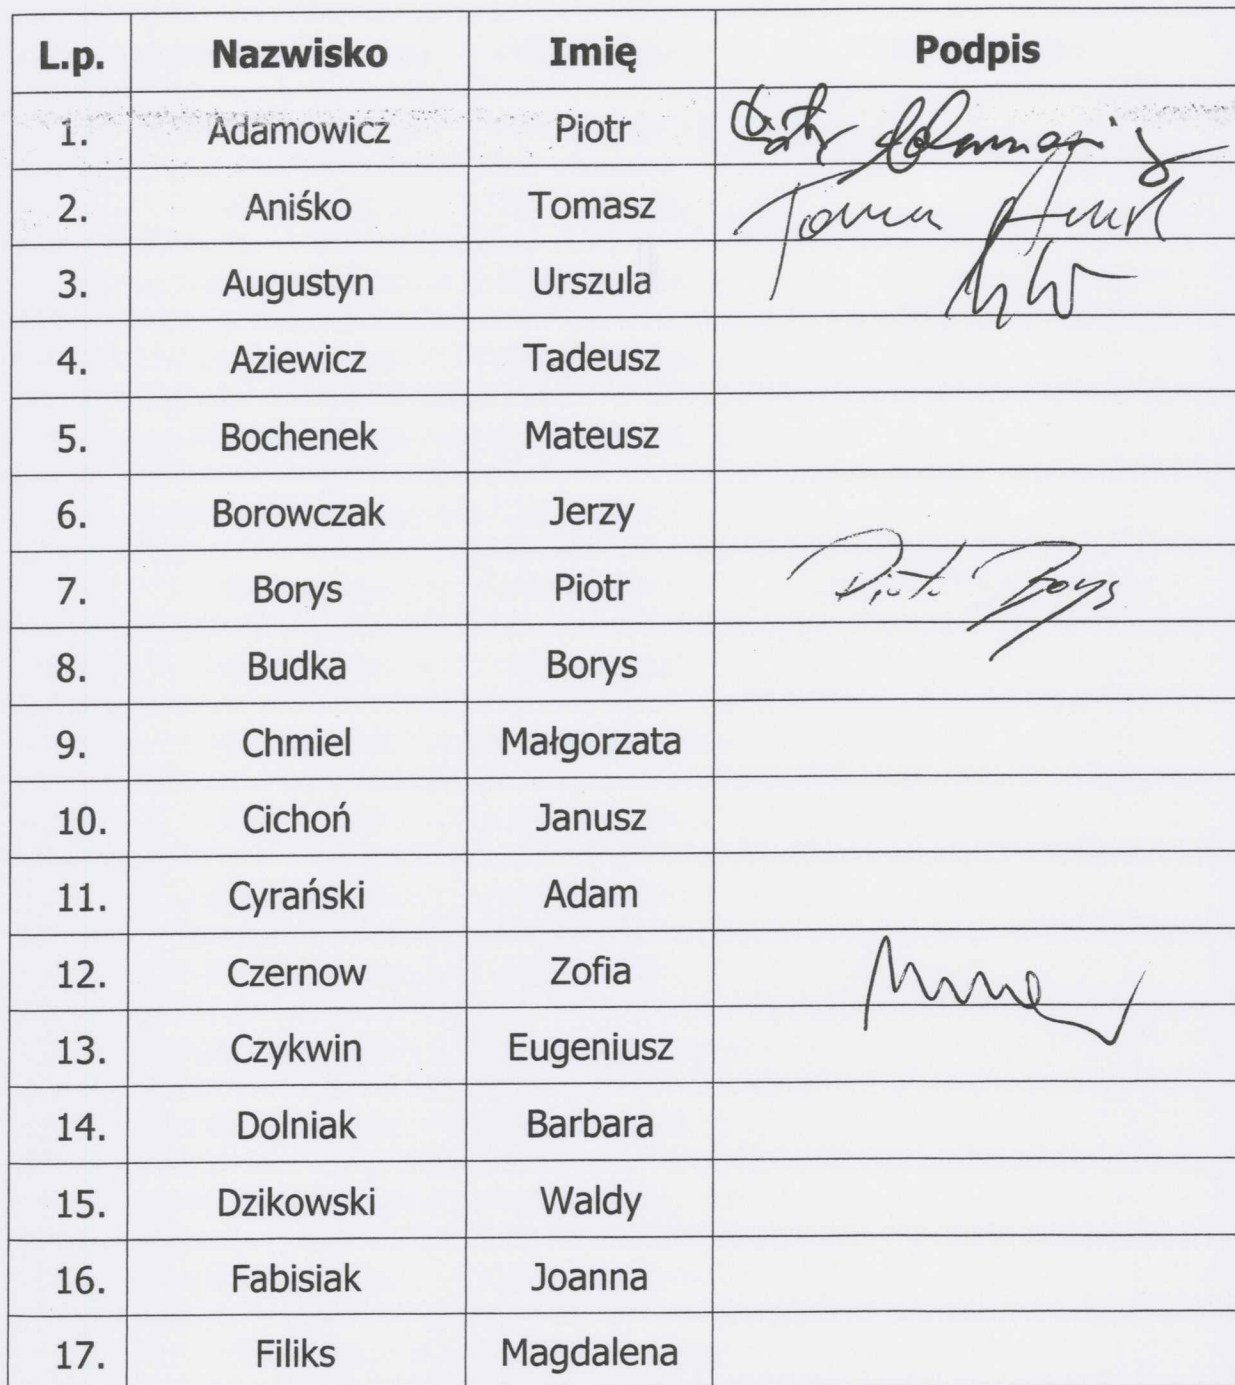 L.p. Nazwisko Imię Podpis
1. Adamowicz Piotr Piotr Adamowicz
2. Aniśko Tomasz
3. Augustyn Urszula
4. Aziewicz Tadeusz
5. Bochenek Mateusz
6. Borowczak Jerzy
7. Borys Piotr Piotr Borys
8. Budka Borys
9. Chmiel Małgorzata
10. Cichoń Janusz
11. Cyrański Adam
12. Czernow Zofia
13. Czykwin Eugeniusz
14. Dolniak Barbara
15. Dzikowski Waldy
16. Fabisiak Joanna
17. Filiks Magdalena